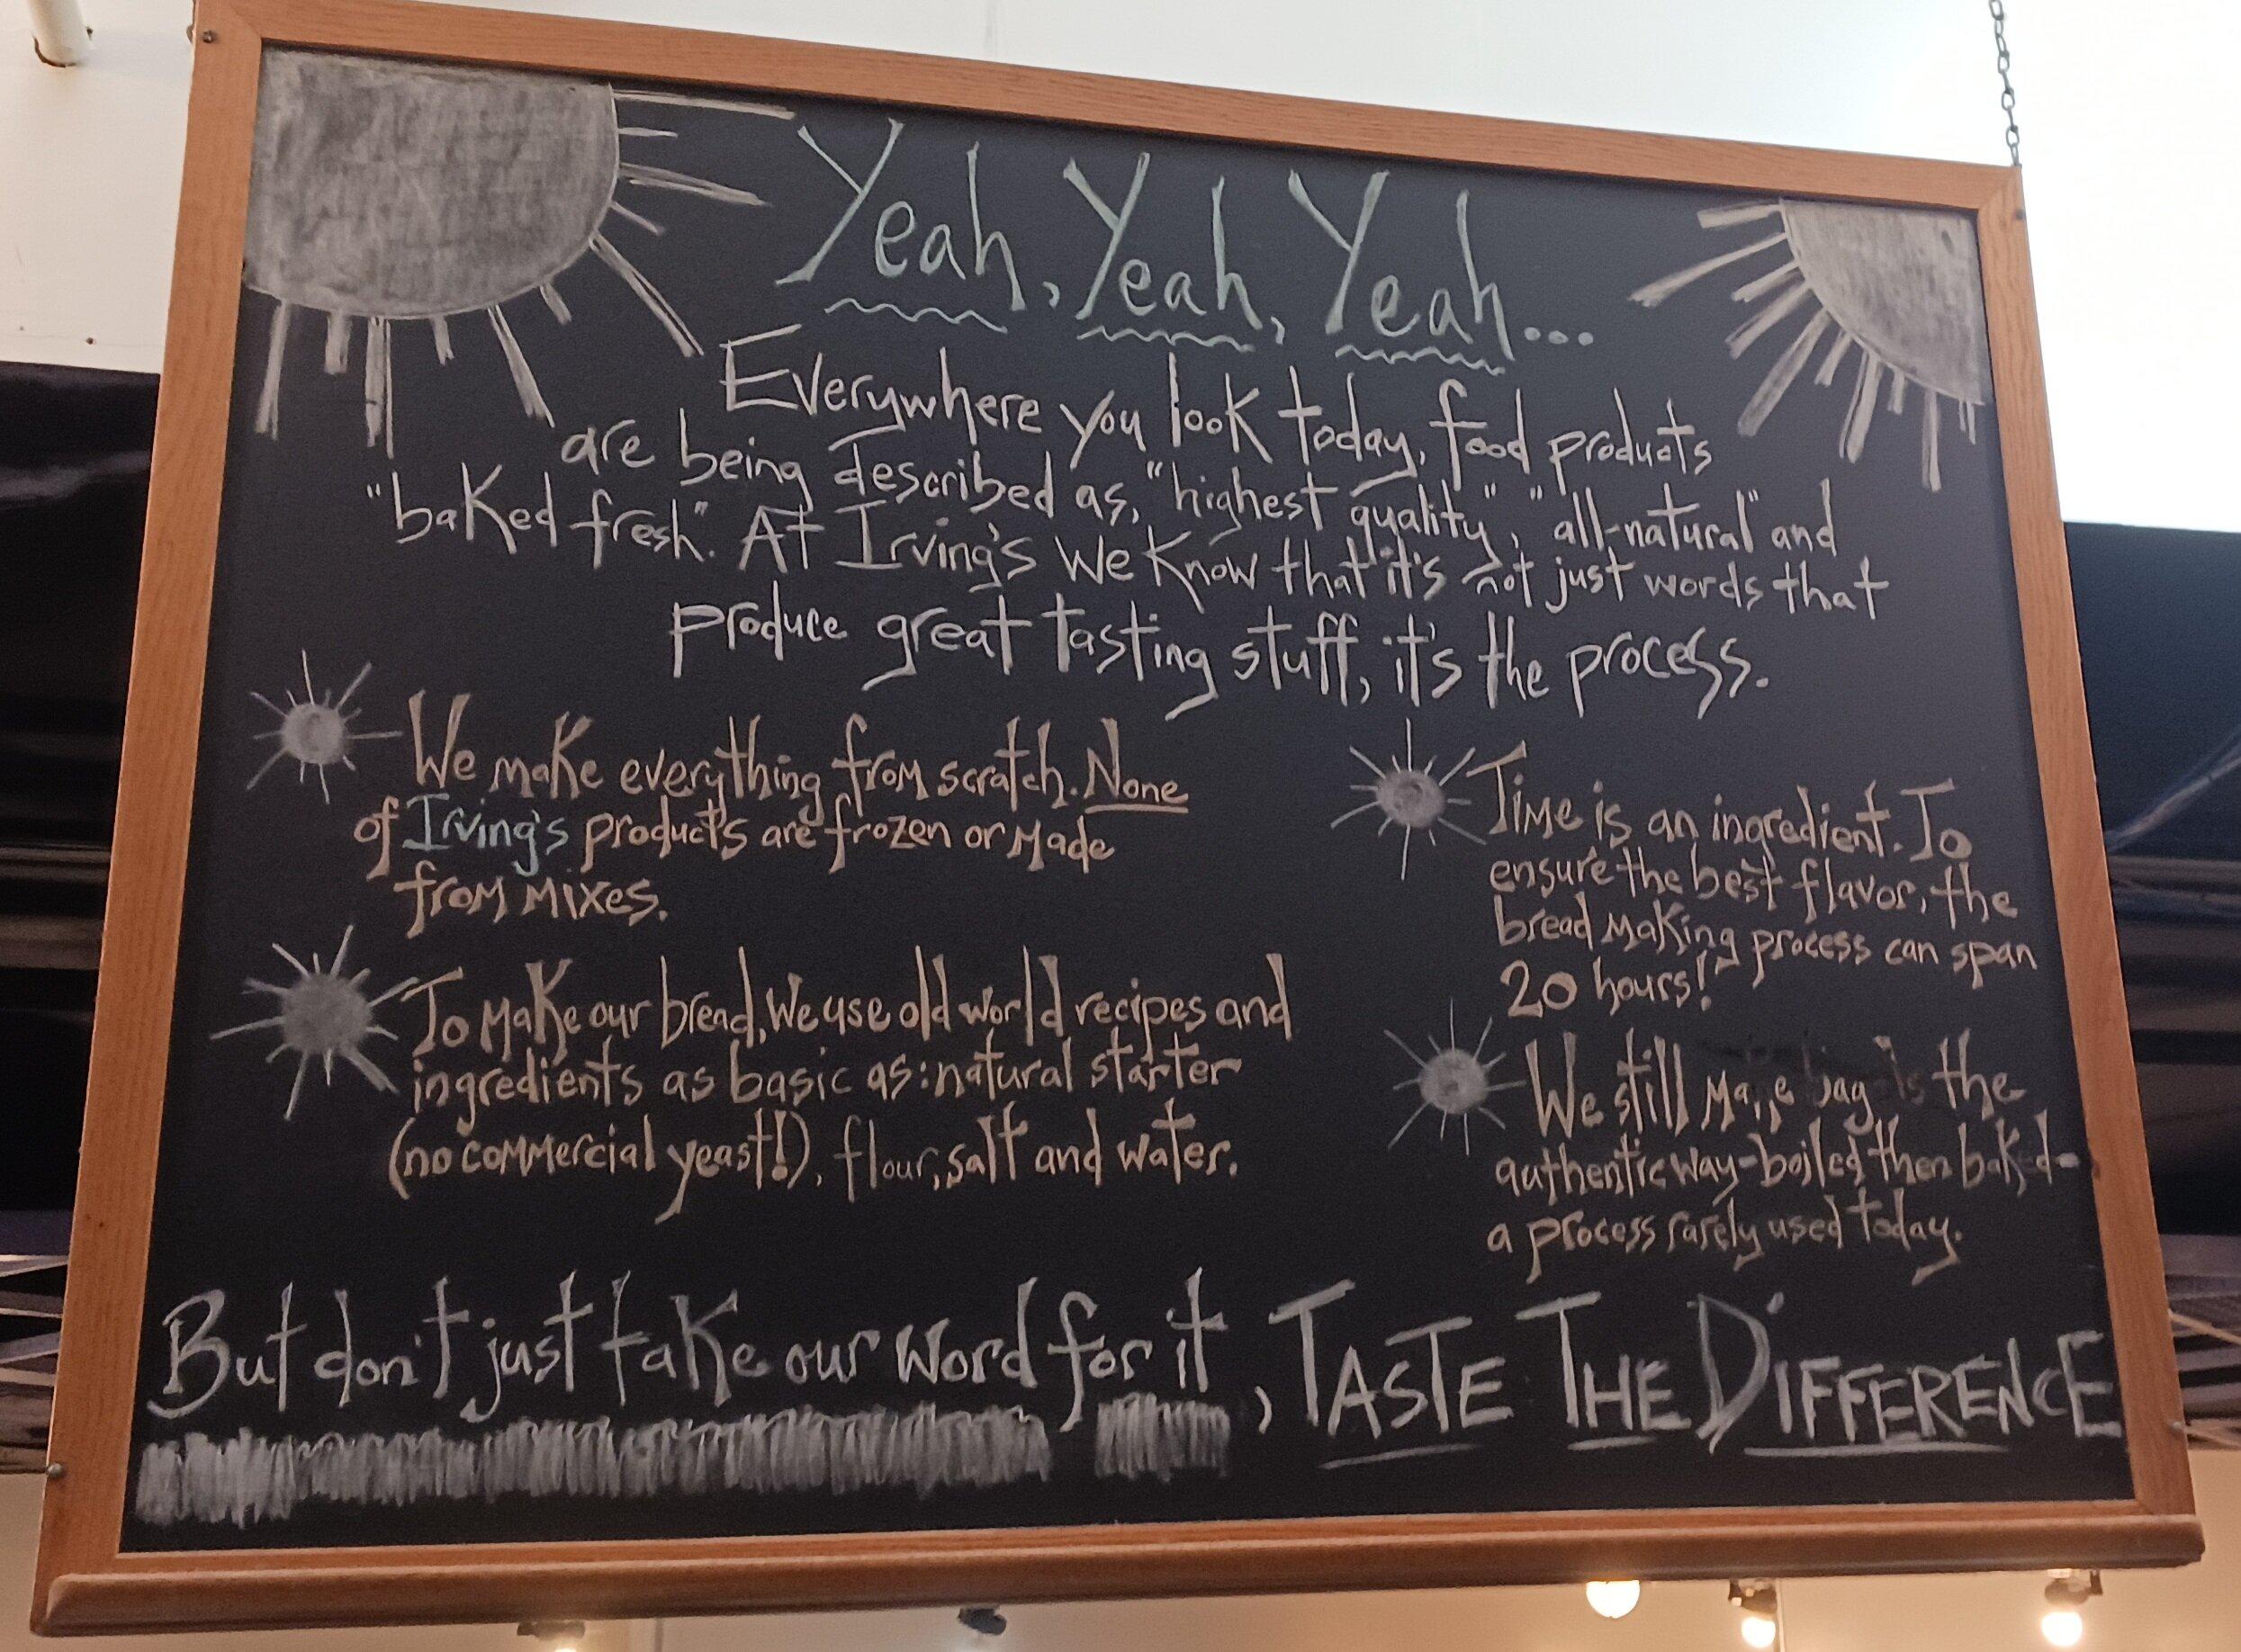 Yeah, Yeah, Yeah...
Everywhere you look today, food products
are being described as, "highest quality", "all-natural" and
"baked fresh". At Irving's we know that it's not just words that
produce great tasting stuff, it's the process.
We make everything from scratch. None
of Irving's products are frozen or made
from mixes.
To make our bread, we use old world recipes and
ingredients as basic as: natural starter
(no commercial yeast!), flour, salt and water.
Time is an ingredient. To
ensure the best flavor, the
bread making process can span
20 hours!
We still make bagels the
authentic way-boiled then baked-
a process rarely used today.
But don't just take our word for it, TASTE THE DIFFERENCE